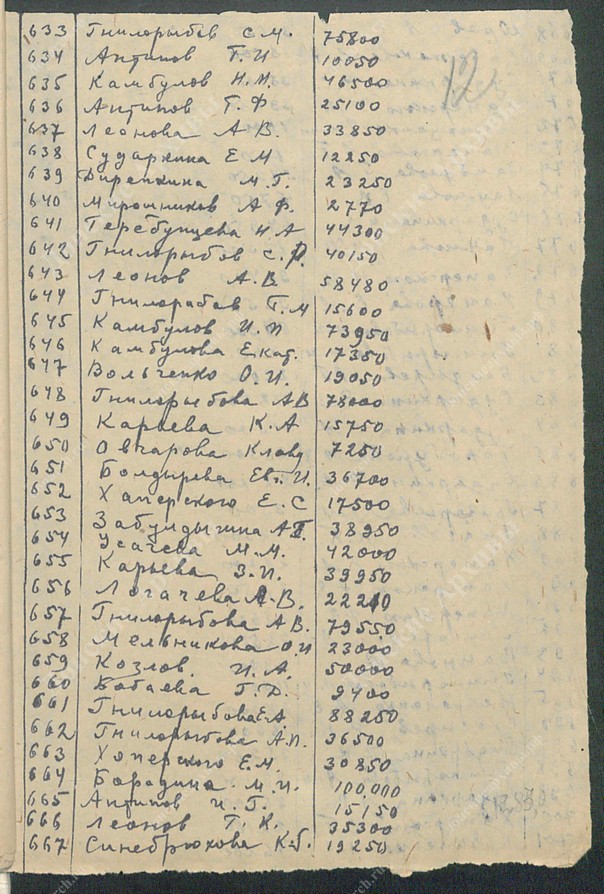 12
633 Гнилорыбов С.М. 75800
634 Антипов Г.И 10050
635 Камбулов Н.М. 46500
636 Антипов Г.Ф 25100
637 Леонова А.В. 33850
638 Сударкина Е.М 12250
639 Дирепкина М.Г. 23250
640 Мирошников А.Ф. 2770
641 Теребунцева Н А 44300
642 Гнилорыбов С.Ф. 40150
643 Леонов А.В 58480
644 Гнилорабов Г.М 15600
645 Камбулов И.П 73950
646 Камбулова Екат. 17350
647 Вольченко О.И. 19050
648 Гнилорыбова АВ 78000
649 Карьева К.А 15750
650 Овчарова Клавд 7250
651 Болдырева Евг.И. 36700
652 Хоперского Е.С 17500
653 Забулдыгина А 38950
654 Усачева М.М. 42000
655 Карьева З.И. 39950
656 Логачева А.В. 22210
657 Гнилорыбова А В. 79550
658 Мельникова О.И 23000
659 Козлов. И.А. 50000
660 Бабаева Г.Д. 9400
661 Гнилорыбова Е.А 88250
662 Гнилорыбова А.П. 36500
663 Хоперского Е.М. 30850
664 Бородина М.И. 100,000
665 Антипов И.Г. 15150
666 Леонов Г.К. 35300
667 Синебрюхова К.б. 19250